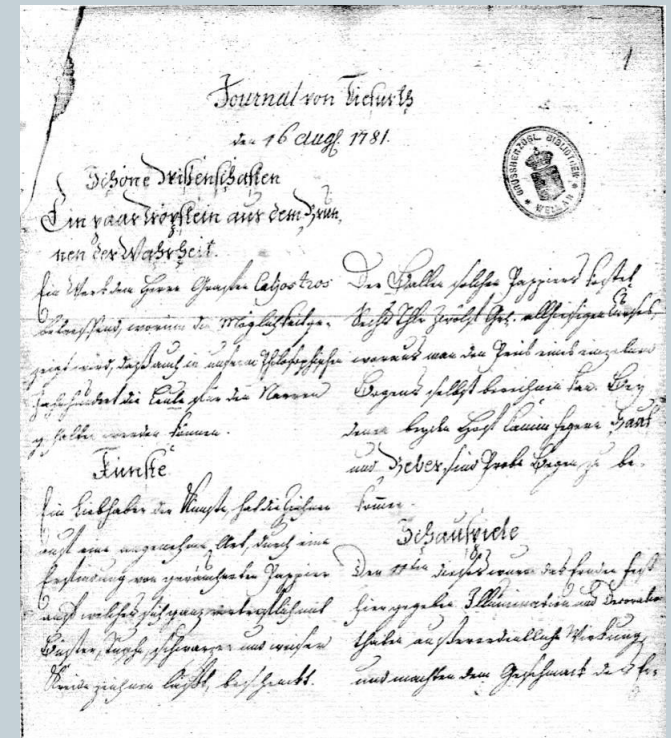 1
Journal von Tiefurth
den 16 Augſ. 1781.
GROSSHERZOGL. BIBLIOTHEK
WEIMAR
Schöne Wißenschaften
Ein paar Tröpflein aus dem Brun,
nen der Wahrheit.
Ein Werk dem Herrn Grafen Caljostros
betreffend, worinn die Möglichkeit ge-
zeigt wird, daß auch in unserm Philosophischen
Jahrhundert die Leute für den Narren
gehalten werden können.
Künste
Ein Liebhaber der Künste, hat die Zeichen
auf eine angenehme Art, durch eine
Erfindung von Pappier
auf welches sich ganz vortreflich mit
Tusche, schwarzer und weiser
Kreide zeichnen läßt, beschenkt.
Der Ballen solchen Pappiers kostet
Sechs Thlr zwölf Grl. allhiesigen Curses,
woraus man den Preis eines einzelnen
Bogens selbst berechnen kan. Bey
denen beyden Hof Cammfegern Haas
und Weber, sind Probe Bogen zu be-
kommen.
Schauspiele
Den dieses waren des Enden Fest
hier gegeben. Illumination und Decoratio
thaten außerordentliche Wirkung,
und machten dem Geschmack des Er-